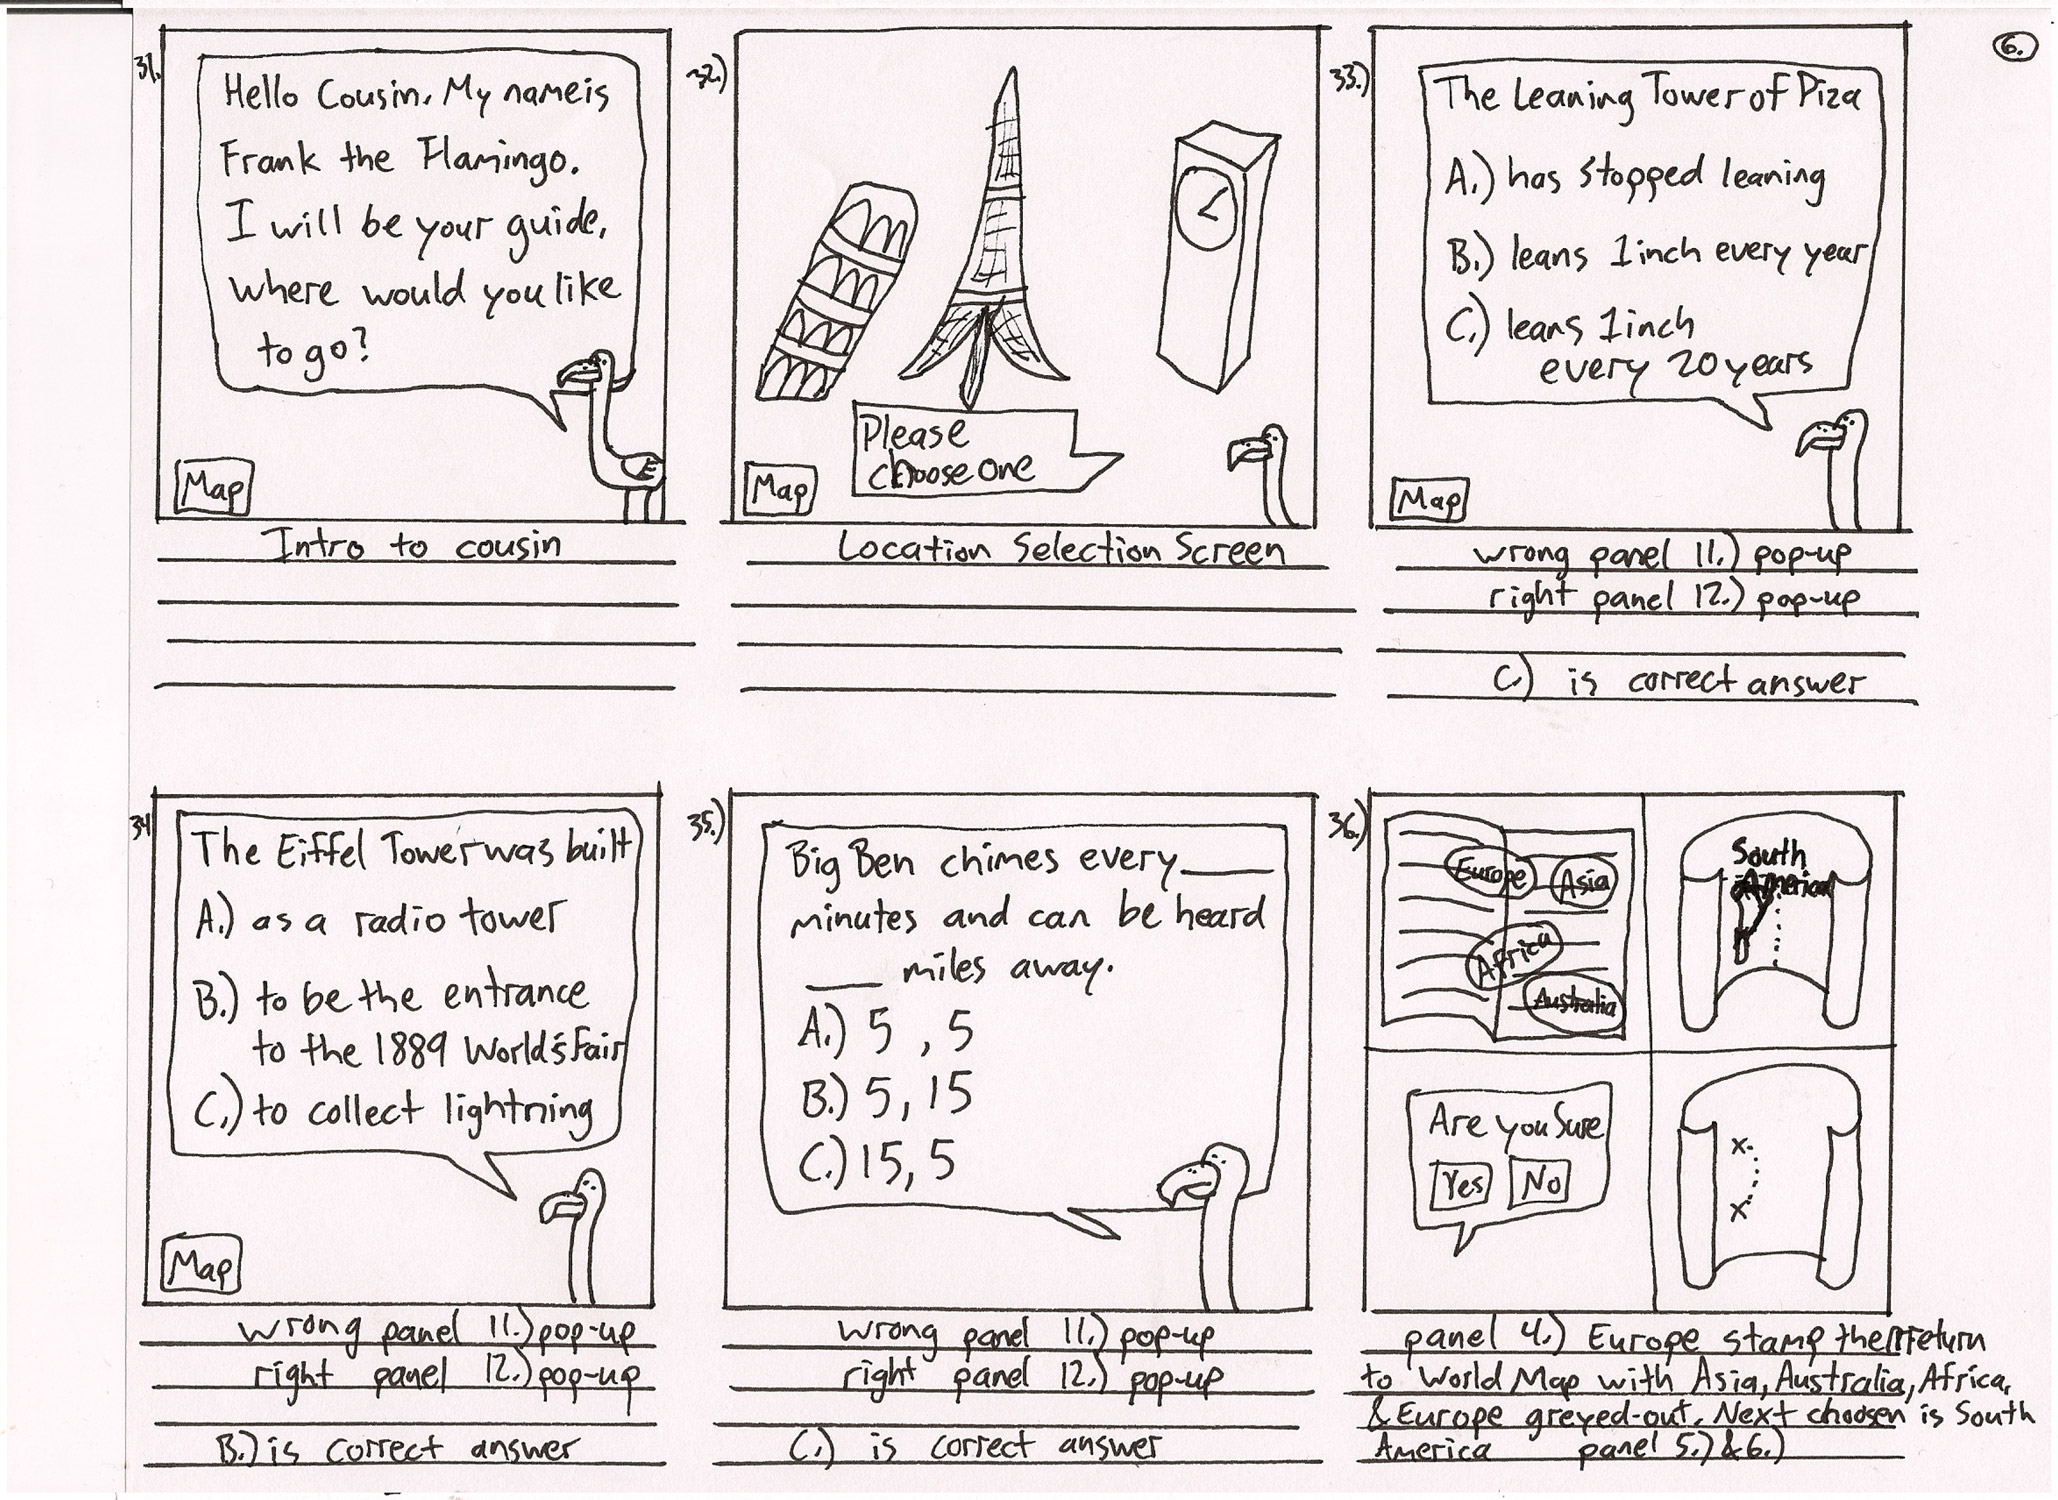 6.
31.
Hello Cousin. My name is
Frank the Flamingo.
I will be your guide,
where would you like
to go?
Map
Intro to cousin
32.)
Please
choose one
Map
Location Selection Screen
33.)
The Leaning Tower of Piza
A.) has stopped leaning
B.) leans 1 inch every year
C.) leans 1 inch
every 20 years
Map
wrong panel 11.) pop-up
right panel 12.) pop-up
C.) is correct answer
34
The Eiffel Tower was built
A.) as a radio tower
B.) to be the entrance
to the 1889 World's Fair
C.) to collect lightning
Map
wrong panel 11.) pop-up
right panel 12.) pop-up
B.) is correct answer
35.)
Big Ben chimes every ____
minutes and can be heard
___ miles away.
A.) 5 , 5
B.) 5, 15
C.) 15, 5
wrong panel 11.) pop-up
right panel 12.) pop-up
C.) is correct answer
36.)
Europe
Asia
Africa
Australia
South
America
Are you Sure
Yes No
x
x
panel 4.) Europe stamp then return
to World Map with Asia, Australia, Africa,
& Europe greyed-out. Next choosen is South
America panel 5.) & 6.)